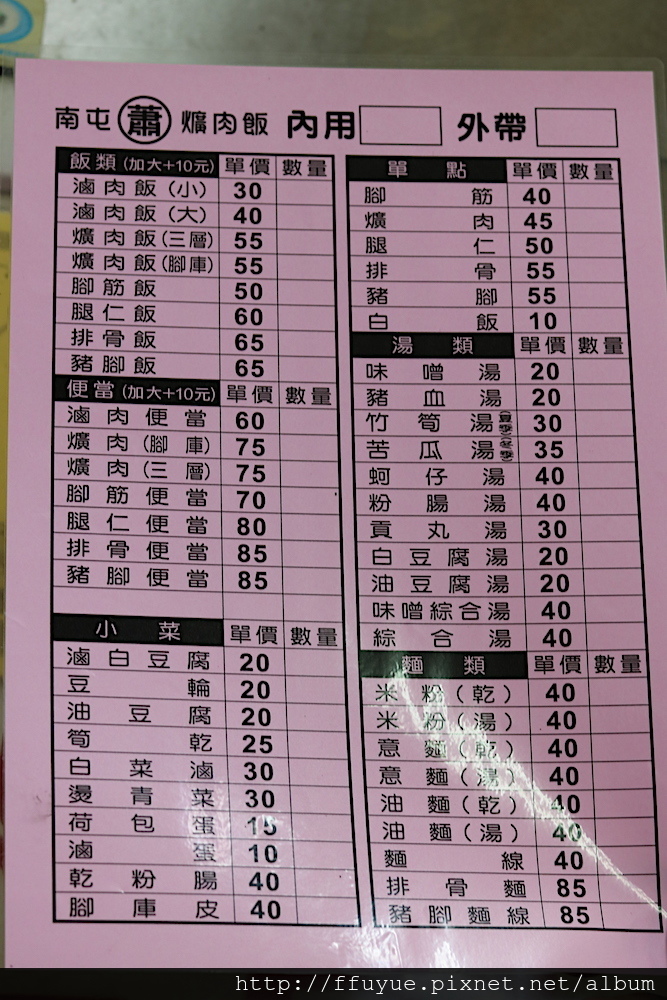 南屯 蕭 爌肉飯 內用 外帶
飯類(加大+10元) 單價 數量
滷肉飯(小) 30
滷肉飯(大) 40
爌肉飯(三層) 55
爌肉飯(腳庫) 55
腳筋飯 50
腿仁飯 60
排骨飯 65
豬腳飯 65
便當(加大+10元) 單價 數量
滷肉便當 60
爌肉(腳庫) 75
爌肉(三層) 75
腳筋便當 70
腿仁便當 80
排骨便當 85
豬腳便當 85
小菜 單價 數量
滷白豆腐 20
豆輪 20
油豆腐 20
筍乾 25
白菜滷 30
燙青菜 30
荷包蛋 15
滷蛋 10
乾粉腸 40
腳庫皮 40
單點 單價 數量
腳筋 40
爌肉 45
腿仁 50
排骨 55
豬腳 55
白飯 10
湯類 單價 數量
味噌湯 20
豬血湯 20
竹筍湯(夏季) 30
苦瓜湯(冬季) 35
蚵仔湯 40
粉腸湯 40
貢丸湯 30
白豆腐湯 20
油豆腐湯 20
味噌綜合湯 40
綜合湯 40
麵類 單價 數量
米粉(乾) 40
米粉(湯) 40
意麵(乾) 40
意麵(湯) 40
油麵(乾) 40
油麵(湯) 40
麵線 40
排骨麵 85
豬腳麵線 85
http://ffuyue.pixnet.net/album